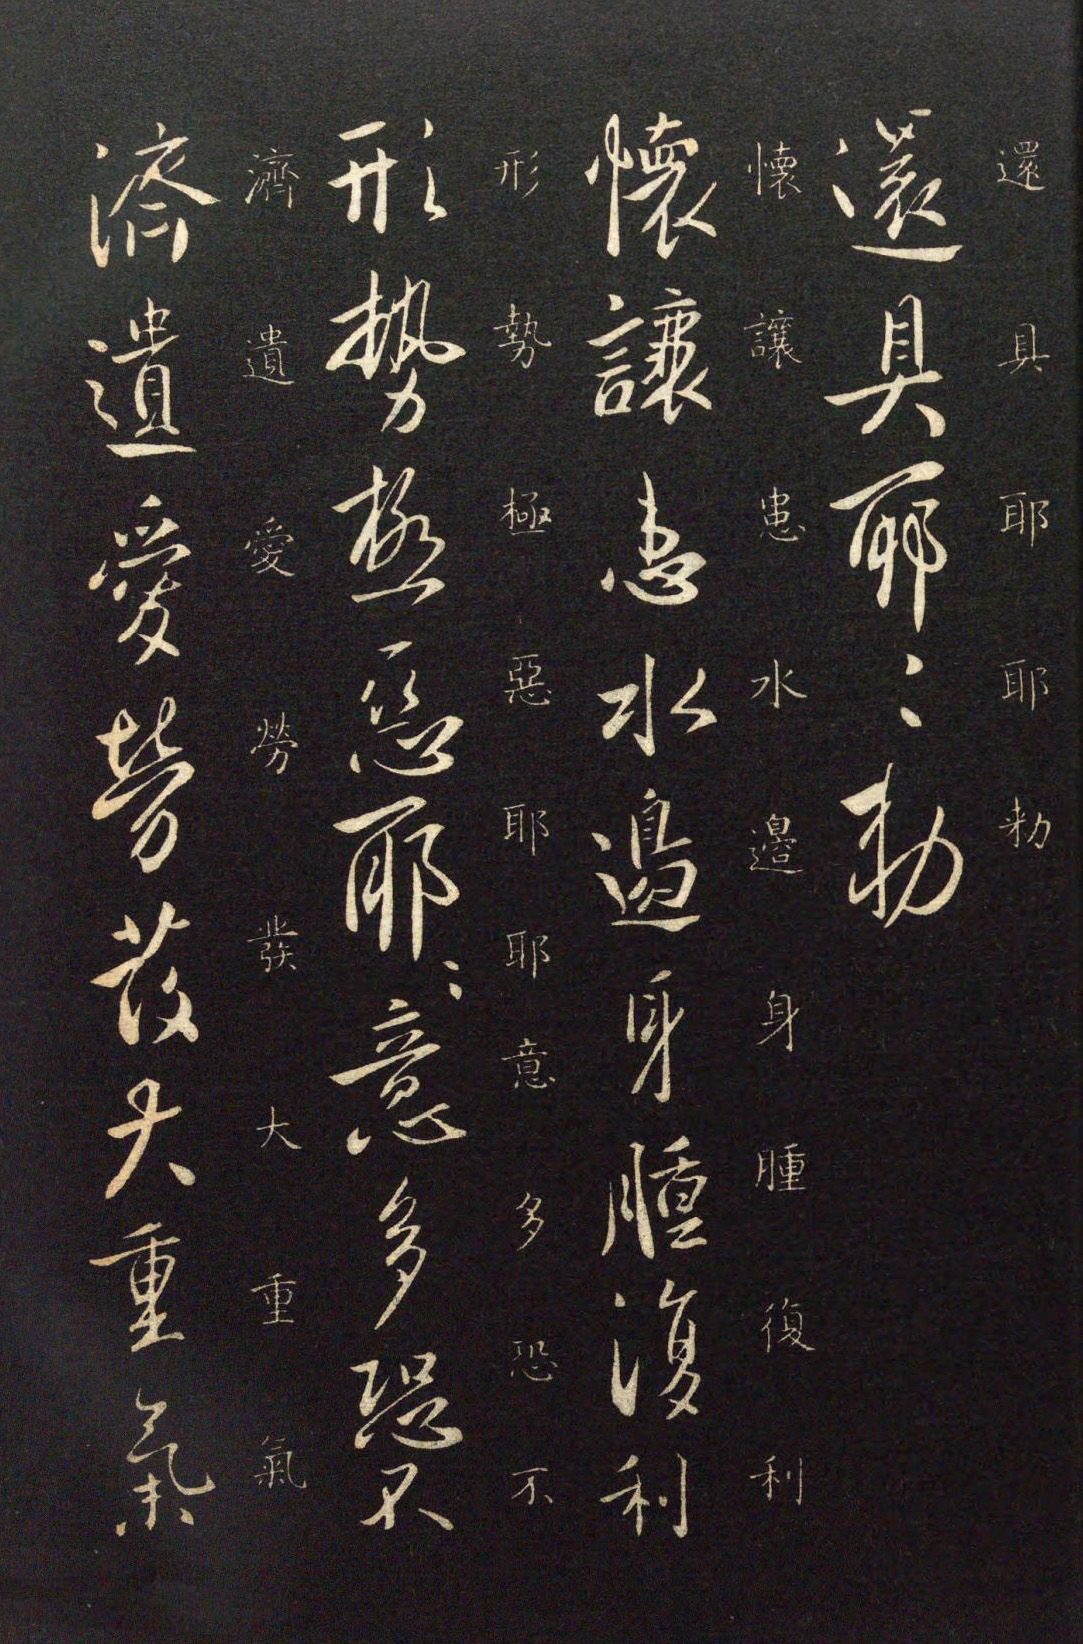 還具耶耶勑
還具耶〻勑
懷讓患水邊身腫復利
懷讓患水邊身腫復利
形勢極惡耶耶意多恐不
形勢極惡耶〻意多恐不
濟遺愛勞發大重氣
濟遺愛勞發大重氣